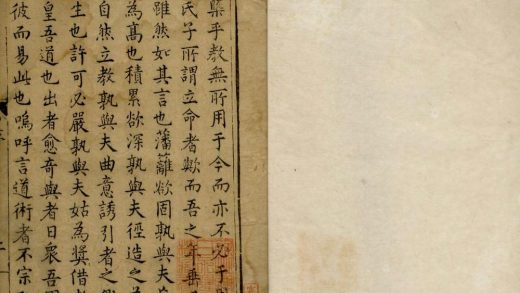 槩乎教無所用于今而亦不必于
氏子所謂立命者歟而吾之年垂
雖然如其言也藩籬欲固孰與夫
為髙也積累欲深孰與夫徑造之
自然立教孰與夫曲意誘引者之
生也許可必嚴孰與夫姑為奨借
皇吾道也出者愈竒與者日衆吾
彼而易此也嗚呼言道術者不宗